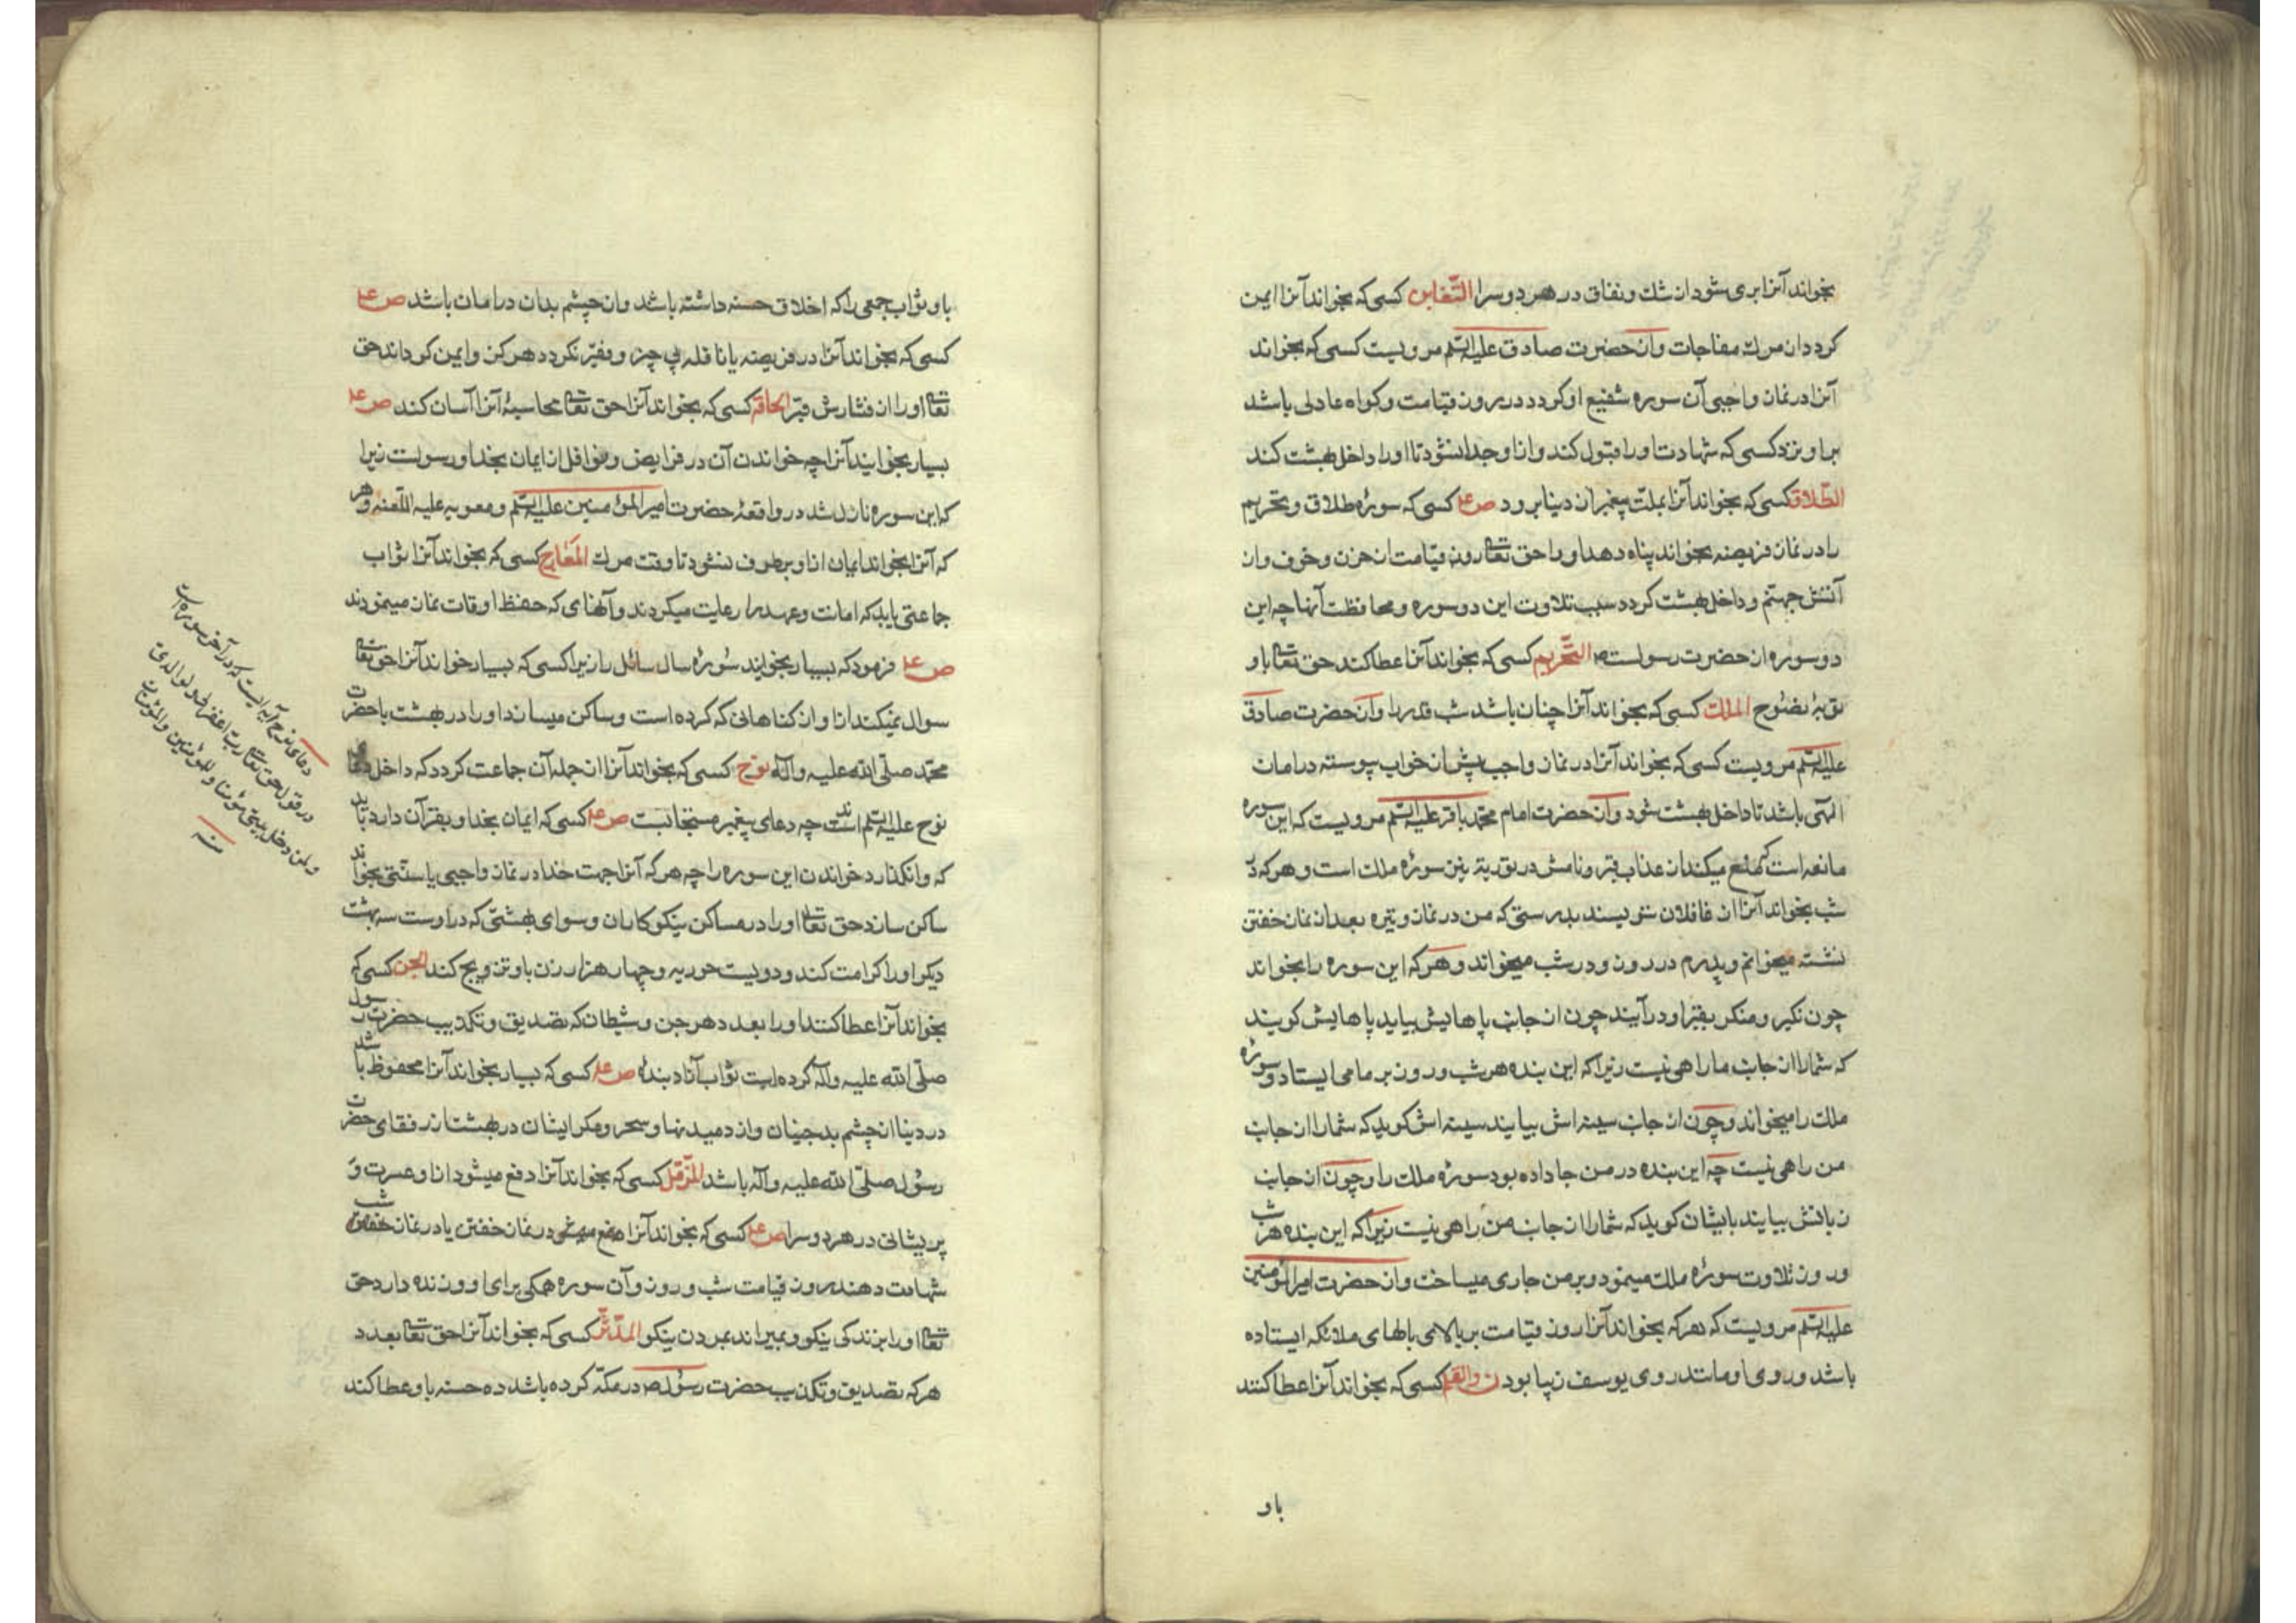 بخواند آنرا بری شود از شك و نفاق در هر دو سرا التّغابن کسی که بخواند آنرا ایمن
کردد از مرك مفاجات و از حضرت صادق علیه السّلم مرویست کسی که بخواند
آنرا در نماز واجبی آن سوره شفیع او کردد در روز قیامت و کواه عادلی باشد
براو نزد کسی که شهادت او را قبول کند و از او جدا نشود تا او را داخل بهشت کند
الطّلاق کسی که بخواند آنرا بملّت پیغمبر از دینا برود ص ع کسی که سورهٔ طلاق و تحریم
را در نماز فریضه بخواند پناه دهد او را حق تعالی روز قیامت از حزن و خوف و از
آتش جهنّم و داخل بهشت کردد سبب تلاوت این دو سوره و محافظت آنها چه این
دو سوره از حضرت رسولست ص التّحریم کسی که بخواند آنرا عطا کند حق تعالی باو
توبهٔ نصوح الملك کسی که بخواند آنرا چنان باشد شب قدر را و از حضرت صادق
علیه السّلم مرویست کسی که بخواند آنرا در نماز واجب پیش از خواب پیوسته در امان
الهی باشد تا داخل بهشت شود و از حضرت امام محمّد باقر علیه السّلم مرویست که این سوره
مانعه است که منع میکند از عذاب قبر و نامش در توریة نیز سورهٔ ملك است و هر که در
شب بخواند آنرا از غافلان ننویسند بدرستی که من در نماز وتیره بعد از نماز خفتن
نشسته میخوانم و پدرم در روز و در شب میخواند و هر که این سوره را بخواند
چون نکیر و منکر بقبر او در آیند چون از جانب پاهایش بیاید پاهایش کویند
که شما را از جانب ما راهی نیست زیرا که این بنده هر شب و روز بر ما می ایستاد و سورهٔ
ملك را میخواند و چون از جانب سینه اش بیایند سینه اش کوید که شما را از جانب
من راهی نیست چه این بنده در من جا داده بود سورهٔ ملك را و چون از جانب
زبانش بیایند بایشان کوید که شما را از جانب من راهی نیست زیرا که این بنده هر شب
و روز تلاوت سورهٔ ملك مینمود و بر من جاری میساخت و از حضرت امیر المؤمنین
علیه السّلم مرویست که هر که بخواند آنرا روز قیامت بر بالای بالهای ملائکه ایستاده
باشد و روی او مانند روی یوسف زیبا بود ن والقلم کسی که بخواند آنرا عطا کنند
باو
باو ثواب جمعی را که اخلاق حسنه داشته باشد و از چشم بدان در امان باشد ص ع
کسی که بخواند آنرا در فریضه یا نافله پی چیز و فقیر نکردد هرکز و ایمن کرداند حق
تعالی او را از فشارش قبر الحاقّه کسی که بخواند آنرا حق تعالی محاسبهٔ آنرا آسان کند ص ع
بسیار بخوانید آنرا چه خواندن آن در فرایض و نوافل از ایمان بخدا و رسولست زیرا
که این سوره نازل شد در واقعهٔ حضرت امیر المؤمنین علیه السّلم و معویه علیه اللّعنه و هر
که آنرا بخواند ایمان از او برطرف نشود تا وقت مرك المَعٰارج کسی که بخواند آنرا ثواب
جماعتی یابد که امانت و عهد را رعایت میکردند و آنهای که حفظ اوقات نماز مینمودند
ص ع فرمود که بسیار بخوانید سُورهٔ سال سائل را زیرا کسی که بسیار خواند آنرا حق تعالی
سوال نمیکند از او از کناهانی که کرده است و ساکن میسازد او را در بهشت با حضرت
محمّد صلّی اللّه علیه و آله نوح کسی که بخواند آنرا از جمله آن جماعت کردد که داخل دعای
نوح علیه السّلم اند چه دعای پیغمبر مستجابست ص ع کسی که ایمان بخدا و بقرآن دارد باید
که وانکذارد خواندن این سوره را چه هر که آنرا جهت خدا در نماز واجبی یا سنّتی بخواند
ساکن سازد حق تعالی او را در مساکن نیکوکاران و سوای بهشتی که در اوست سه بهشت
دیکر او را کرامت کند و دویست حوریه و چهار هزار زن باو تزویج کند الجن کسی که
بخواند آنرا عطا کنند او را بعدد هر جن و شیطان که تصدیق و تکذیب حضرت رسول
صلّی اللّه علیه و آله کرده است ثواب آزاد بندهٔ ص ع کسی که بسیار بخواند آنرا محفوظ باشد
در دینا از چشم بد جنیان و از دمیدنها و سحر و مکر ایشان در بهشت از رفقای حضرت
رسُول صلّی اللّه علیه و آله باشد المزّمّل کسی که بخواند آنرا دفع میشود از او عسرت و
پریشانی در هر دو سرا ص ع کسی که بخواند آنرا در نماز خفتن یا در نماز شب
شهادت دهند روز قیامت شب و روز و آن سوره همکی برای او و زنده دارد حق
تعالی او را بزندکی نیکو و بمیراند بمردن نیکو المدّثّر کسی که بخواند آنرا حق تعالی بعدد
هر که تصدیق و تکذیب حضرت رسُول ص در مکّه کرده باشد ده حسنه باو عطا کند
دعای نوح آیه ایست که در آخر سوره است
در قول حق تعالی رب اغفر لی و لوالدیّ
و لمن دخل بیتی مؤمنا و للمؤمنین و المؤمنات
منه